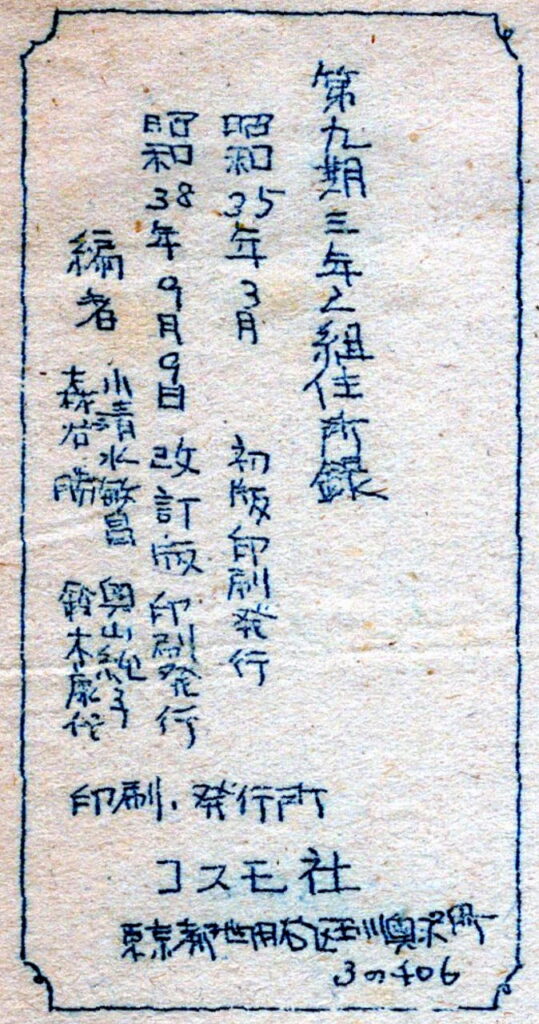 第九期三年と組住所録
昭和35年3月 初版印刷発行
昭和38年9月9日 改訂版印刷発行
編者 小清水敏昌 奥山純子
森谷勝 鈴木康代
印刷・発行所
コスモ社
東京都世田谷区玉川奥沢町
3の406